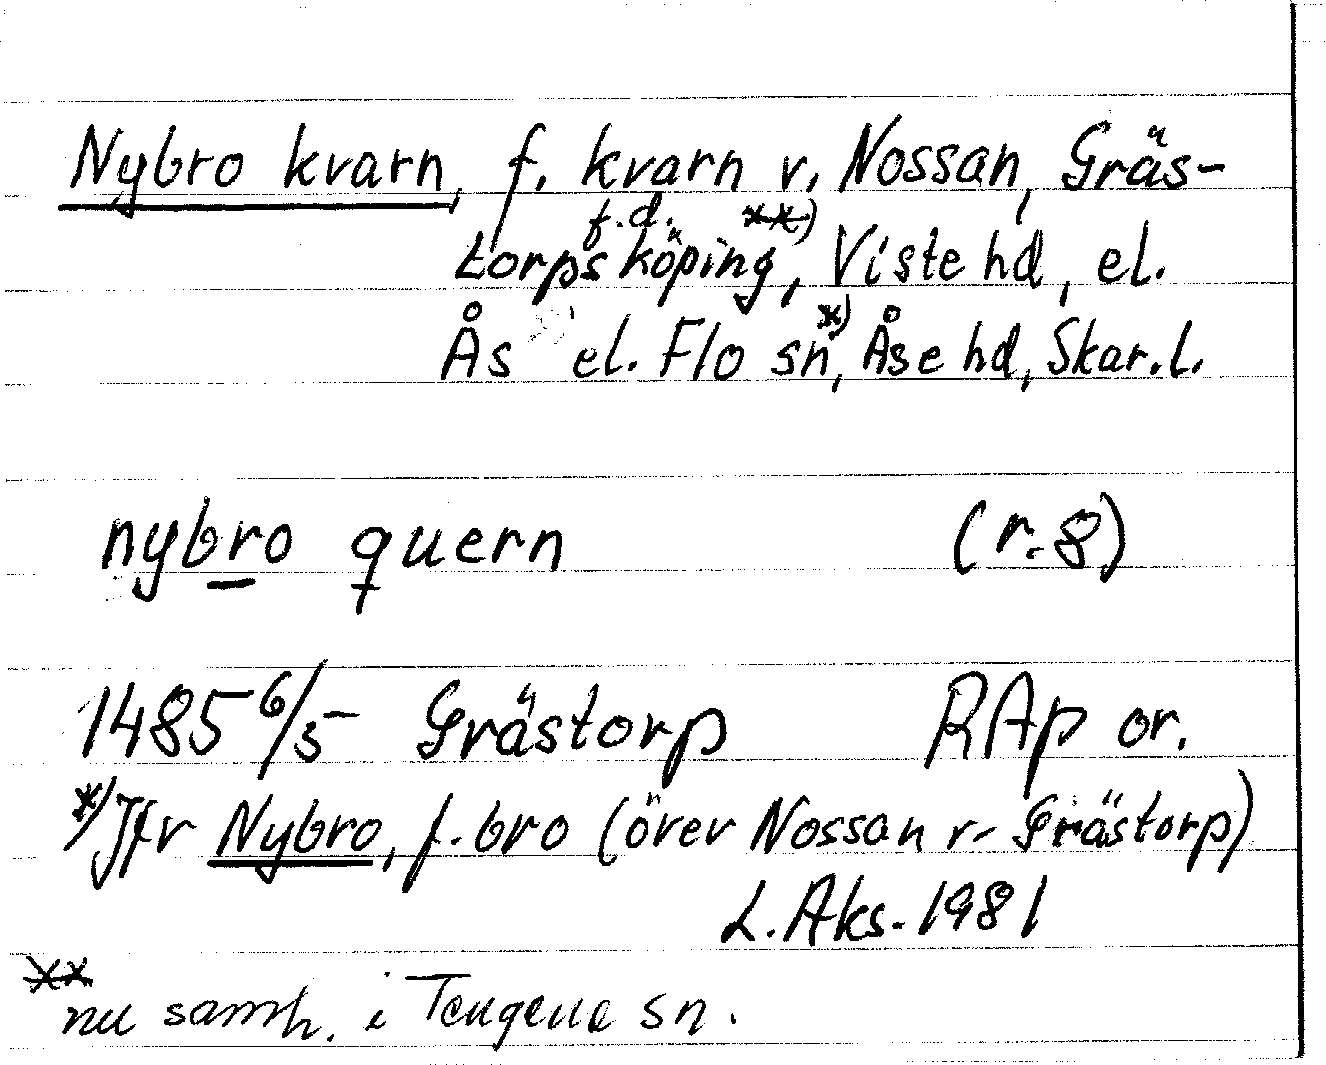 Nybro kvarn, f. kvarn v. Nossan, Gräs-
torps f.d. köping **), Viste hd, el.
Ås el. Flo sn *), Åse hd, Skar.l.
nybro quern (r.8)
1485 6/5 Grästorp RAp or.
*) Jfr Nybro, f. bro (över Nossan v. Grästorp)
L. Aks. 1981
** nu samh. i Tengene sn.